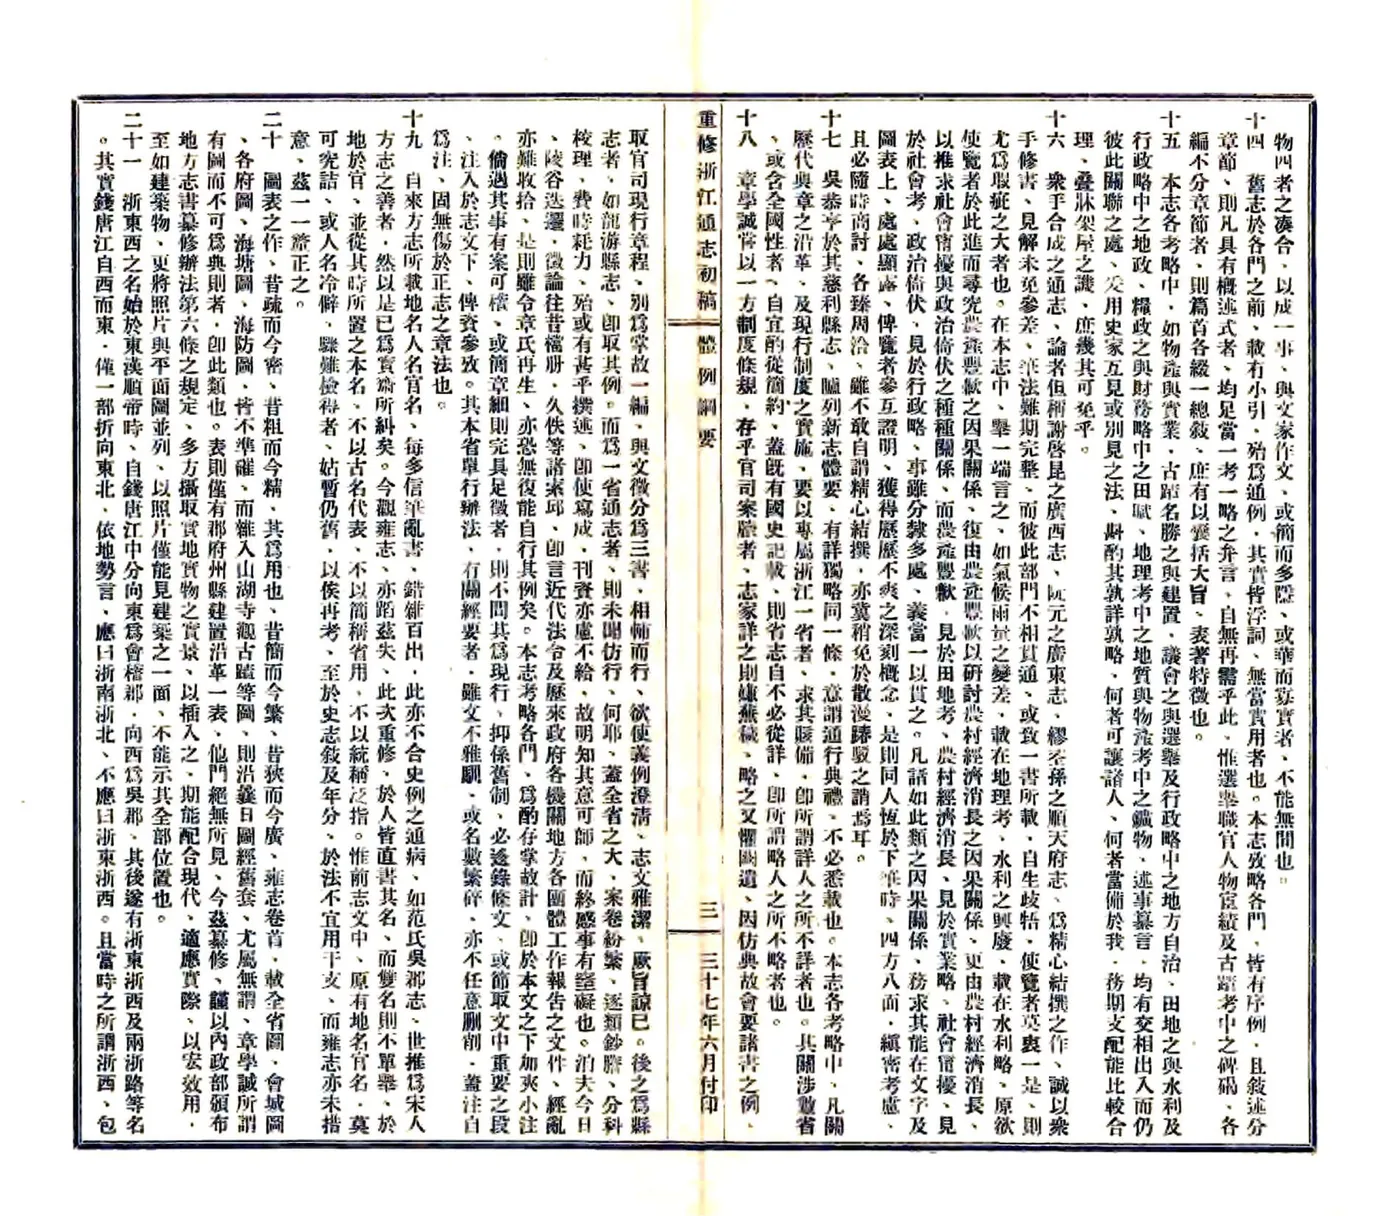 物四者之湊合、以成一事、與文家作文、或簡而多隱、或華而寡實者、不能無間也。
十四　舊志於各門之前、載有小引、殆爲通例、其實皆浮詞、無當實用者也。本志攷略各門、皆有序例、且敍述分
章節、則凡具有概述式者、均足當一考一略之弁言、自無再需乎此、惟選舉職官人物宦績及古蹟考中之碑碣、各
編不分章節者、則篇首各綴一總敍、庶有以囊括大旨、表著特徵也。
十五　本志各考略中、如物產與實業、古蹟名勝之與建置、議會之與選舉及行政略中之地方自治、田地之與水利及
行政略中之地政、糧政之與財務略中之田賦、地理考中之地質與物產考中之鑛物、述事纂言、均有交相出入而仍
彼此關聯之處、爰用史家互見或別見之法、斟酌其孰詳孰略、何者可讓諸人、何者當備於我、務期支配能比較合
理、疊牀架屋之譏、庶幾其可免乎。
十六　衆手合成之通志、論者但稱謝啓昆之廣西志、阮元之廣東志、繆荃孫之順天府志、爲精心結撰之作、誠以衆
手修書、見解未免參差、筆法難期完整、而彼此部門不相貫通、或致一書所載、自生歧牾、使覽者莫衷一是、則
尤爲瑕疵之大者也。在本志中、舉一端言之、如氣候雨量之變差、載在地理考、水利之興廢、載在水利略、原欲
使覽者於此進而尋究農產豐歉之因果關係、復由農產豐歉以研討農村經濟消長之因果關係、更由農村經濟消長、
以推求社會甯擾與政治倚伏之種種關係、而農產豐歉、見於田地考、農村經濟消長、見於實業略、社會甯擾、見
於社會考、政治倚伏、見於行政略、事雖分隸多處、義當一以貫之。凡諸如此類之因果關係、務求其能在文字及
圖表上、處處顯露、俾覽者參互證明、獲得歷歷不爽之深刻概念、是則同人恆於下筆時、四方八面、縝密考慮、
且必隨時商討、各臻周洽、雖不敢自謂精心結撰、亦冀稍免於散漫踳駁之誚焉耳。
十七　吳恭亨於其慈利縣志、臚列新志體要、有詳獨略同一條、意謂通行典禮、不必悉載也。本志各考略中、凡關
歷代典章之沿革、及現行制度之實施、要以專屬浙江一省者、求其賅備、卽所謂詳人之所不詳者也。其關涉數省
、或含全國性者、自宜酌從簡約、蓋旣有國史記載、則省志自不必從詳、卽所謂略人之所不略者也。
十八　章學誠嘗以一方制度條規、存乎官司案牘者、志家詳之則嫌蕪穢、略之又懼闕遺、因仿典故會要諸書之例、
重修浙江通志初稿　體例綱要　三　三十七年六月付印
取官司現行章程、別爲掌故一編、與文徵分爲三書、相輔而行、欲使義例澄清、志文雅潔、厥旨諒已。後之爲縣
志者、如龍游縣志、卽取其例。而爲一省通志者、則未聞仿行、何耶、蓋全省之大、案卷紛繁、逐類鈔謄、分科
校理、費時耗力、殆或有甚乎撰述、卽使寫成、刊資亦慮不給、故明知其意可師、而終感事有窒礙也。洎夫今日
、陵谷迭遷、徵論往昔檔册、久佚等諸索邱、卽言近代法令及歷來政府各機關地方各團體工作報告之文件、經亂
亦難收拾、是則雖令章氏再生、亦恐無復能自行其例矣。本志考略各門、爲酌存掌故計、卽於本文之下加夾小注
、倘遇其事有案可稽、或簡章細則完具足徵者、則不問其爲現行、抑係舊制、必逐錄條文、或節取文中重要之段
、注入於志文下、俾資參攷。其本省單行辦法、有關經要者、雖文不雅馴、或名數繁碎、亦不任意删削、蓋注自
爲注、固無傷於正志之章法也。
十九　自來方志所載地名人名官名、每多信筆亂書、錯雜百出、此亦不合史例之通病、如范氏吳郡志、世推爲宋人
方志之善者、然以是已爲實齋所糾矣。今觀雍志、亦蹈茲失、此次重修、於人皆直書其名、而雙名則不單舉、於
地於官、並從其時所置之本名、不以古名代表、不以簡稱省用、不以統稱泛指。惟前志文中、原有地名官名、莫
可究詰、或人名冷僻、驟難檢得者、姑暫仍舊、以俟再考、至於史志敍及年分、於法不宜用干支、而雍志亦未措
意、茲一一釐正之。
二十　圖表之作、昔疏而今密、昔粗而今精、其爲用也、昔簡而今繁、昔狹而今廣、雍志卷首、載全省圖、會城圖
、各府圖、海塘圖、海防圖、皆不準確、而雜入山湖寺觀古蹟等圖、則沿曩日圖經舊套、尤屬無謂、章學誠所謂
有圖而不可爲典則者、卽此類也。表則僅有郡府州縣建置沿革一表、他門絕無所見、今茲纂修、謹以內政部頒布
地方志書纂修辦法第六條之規定、多方攝取實地實物之實景、以插入之、期能配合現代、適應實際、以宏效用、
至如建築物、更將照片與平面圖並列、以照片僅能見建築之一面、不能示其全部位置也。
二十一　浙東西之名始於東漢順帝時、自錢唐江中分向東爲會稽郡、向西爲吳郡、其後遂有浙東浙西及兩浙路等名
。其實錢唐江自西而東、僅一部折向東北、依地勢言、應曰浙南浙北、不應曰浙東浙西。且當時之所謂浙西、包